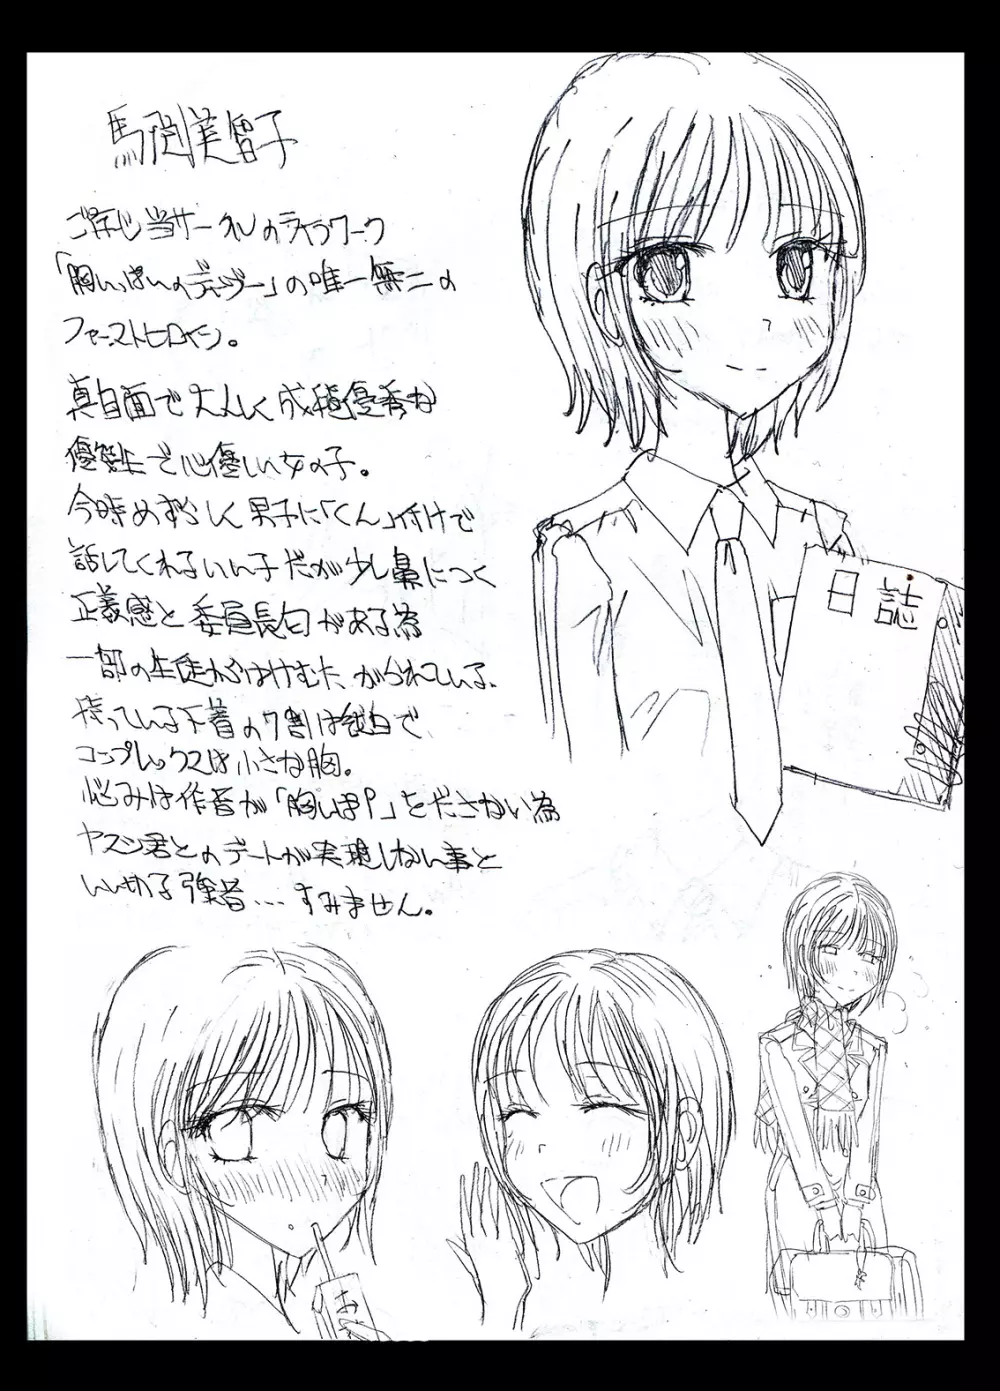 馬渕美智子
ご存じ当サークルのライフワーク
「胸いっぱいのディザー」の唯一無二の
ファーストヒロイン。
真白面で大人しく成績優秀な
優等生で心優しい女の子。
今時めずらしく男子に「くん」付けで
話してくれるいい子だが少し鼻につく
正義感と委員長臼がある為
一部の生徒からはけむたがられている。
持っている下着の7割は純白で
コンプレックスは小さな胸。
悩みは作者が「胸いぱ」をださない為
ヤスシ君とのデートが実現しない事と
いい切る強者...すみません。
日誌
お